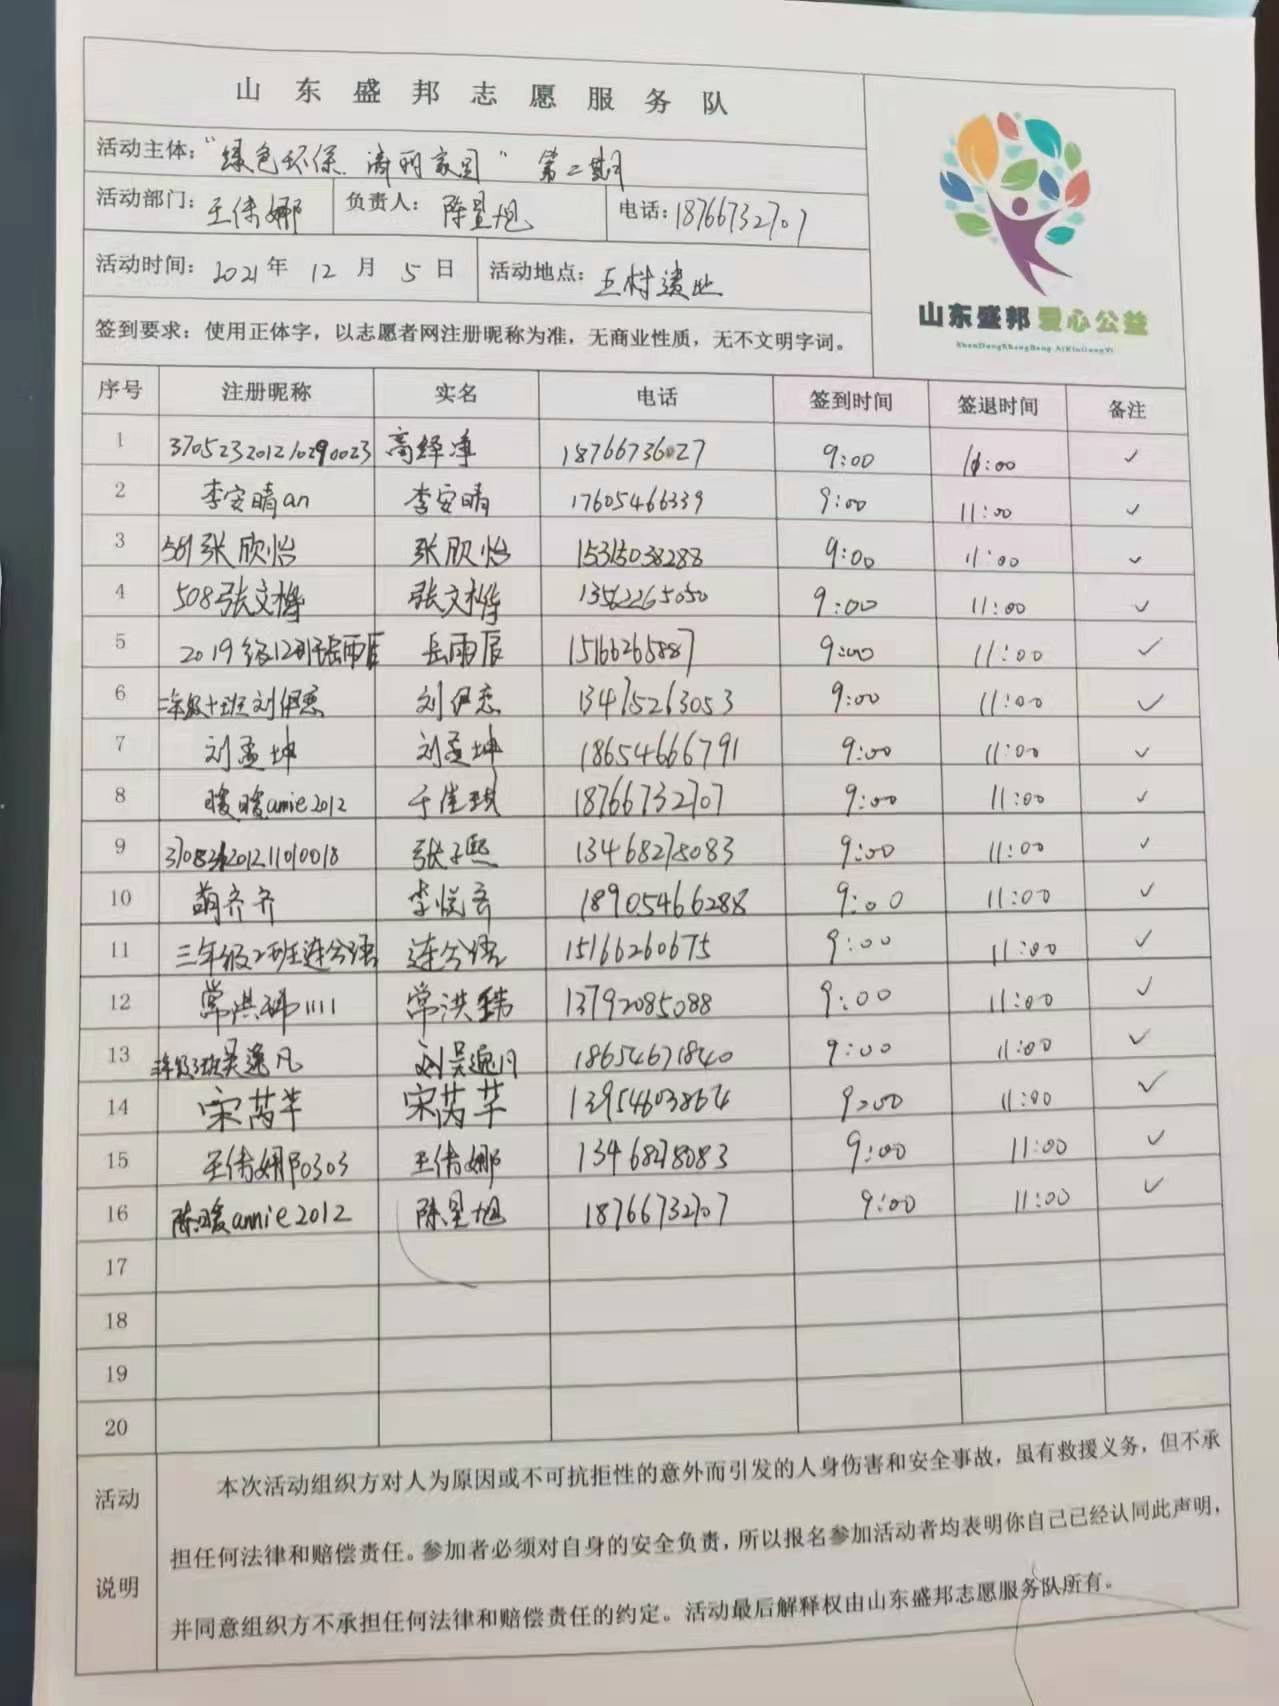 山东盛邦志愿服务队
活动主体："绿色环保 清利家园" 第二期
活动部门：王倩娜 负责人：陈昱旭 电话：18766732707
活动时间：2021年 12 月 5 日 活动地点：五村遗址
签到要求：使用正体字，以志愿者网注册昵称为准，无商业性质，无不文明字词。
山东盛邦 爱心公益
ShanDongShengBang AiXinGongYi
序号 注册昵称 实名 电话 签到时间 签退时间 备注
1 18766736027 9:00 11:00 ✓
2 李安晴an 李安晴 17605466339 9:00 11:00 ✓
3 张欣怡 张欣怡 15315038288 9:00 11:00 ✓
4 508张文 张文 13562265050 9:00 11:00 ✓
5 2019级12班岳雨辰 岳雨辰 15166265887 9:00 11:00 ✓
6 刘伊恋 刘伊恋 13475263053 9:00 11:00 ✓
7 刘孟坤 刘孟坤 18654666791 9:00 11:00 ✓
8 暖暖amie2012 于佳琪 18766732707 9:00 11:00 ✓
9 张子熙 13468278083 9:00 11:00 ✓
10 萌齐齐 李悦齐 18905466288 9:00 11:00 ✓
11 三年级2班连兮语 连兮语 15166260675 9:00 11:00 ✓
12 常洪1111 常洪 13792085088 9:00 11:00 ✓
13 吴逸凡 刘吴逸凡 18654671840 9:00 11:00 ✓
14 宋芮芊 宋芮芊 13954603864 9:00 11:00 ✓
15 王倩娜0303 王倩娜 13468278083 9:00 11:00 ✓
16 陈暖annie2012 陈昱旭 18766732707 9:00 11:00 ✓
17
18
19
20
活动说明
本次活动组织方对人为原因或不可抗拒性的意外而引发的人身伤害和安全事故，虽有救援义务，但不承
担任何法律和赔偿责任。参加者必须对自身的安全负责，所以报名参加活动者均表明你自己已经认同此声明，
并同意组织方不承担任何法律和赔偿责任的约定。活动最后解释权由山东盛邦志愿服务队所有。